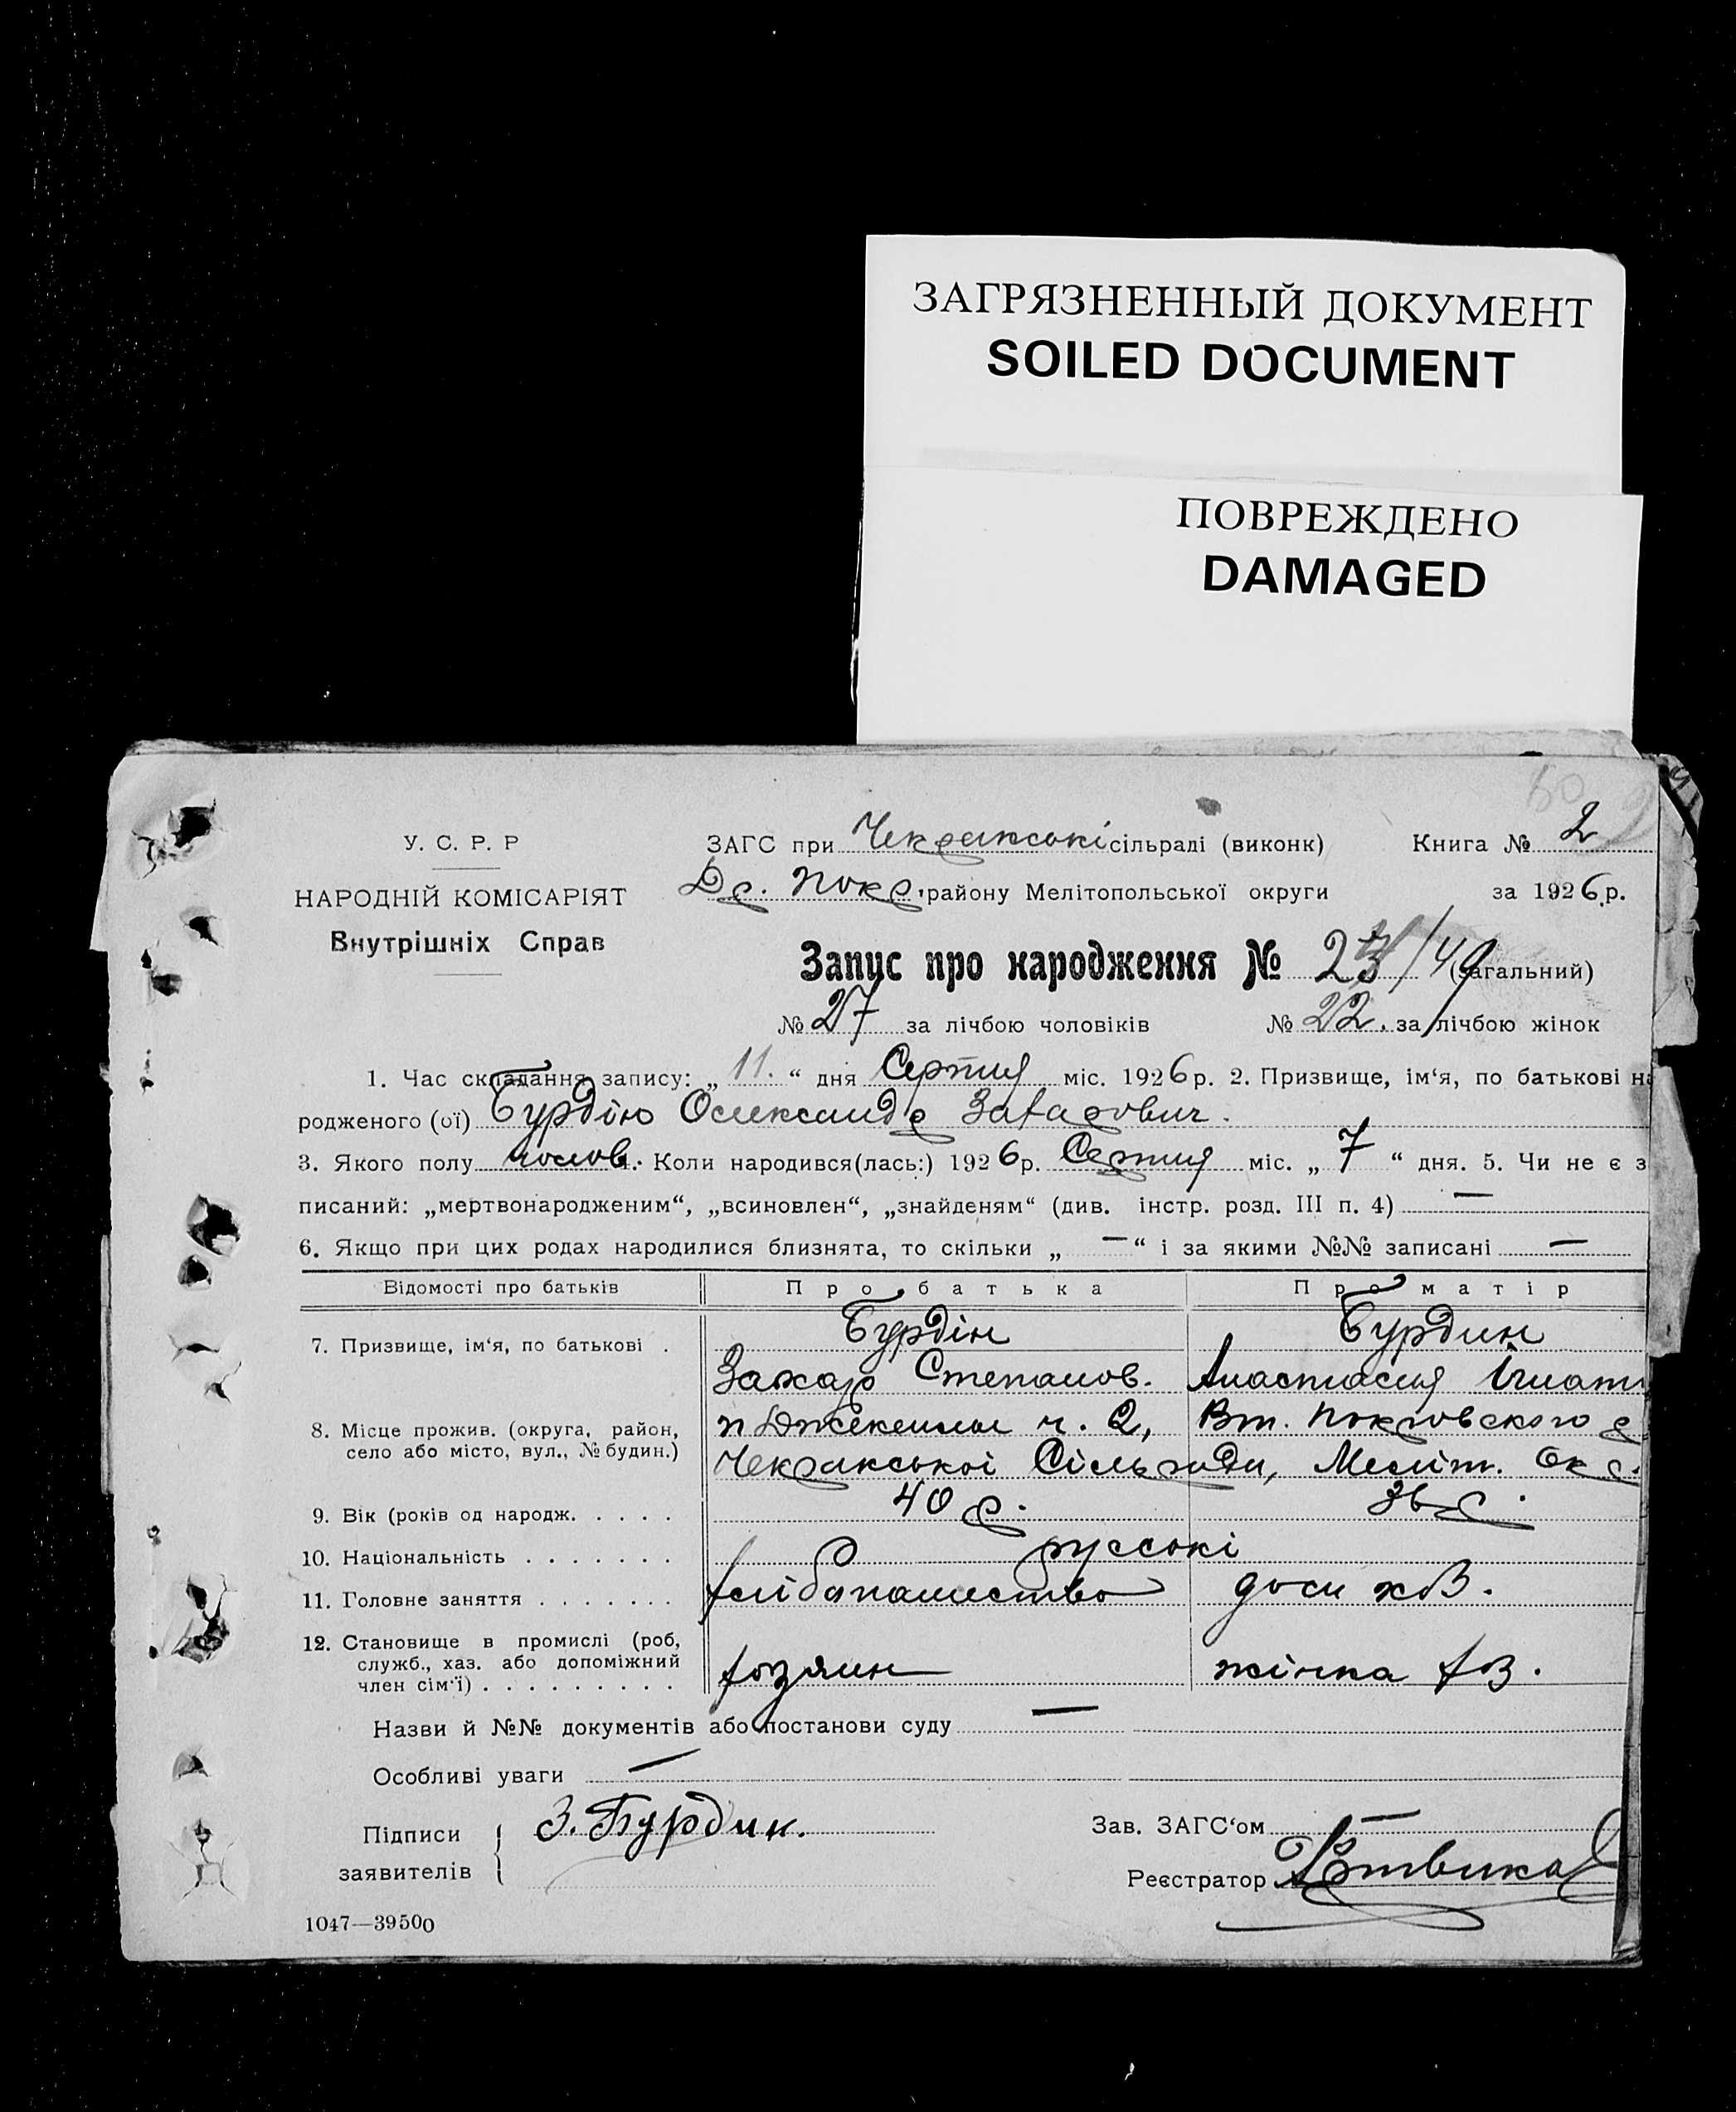 ЗАГРЯЗНЕННЫЙ ДОКУМЕНТ
SOILED DOCUMENT
ПОВРЕЖДЕНО
DAMAGED
У. С. Р. Р
НАРОДНІЙ КОМІСАРІЯТ
Внутрішніх Справ
ЗАГС при Чекракські сільраді (виконк) Книга № 2
Др. Покр. району Мелітопольської округи за 1926 р.
Запис про народження № /49 (загальний)
№ 27 за лічбою чоловіків № 22. за лічбою жінок
1. Час складання запису: „ 11. “ дня Серпня міс. 1926 р. 2. Призвище, ім‘я, по батькові на
родженого (ої) Бурдію Олександр Захарович.
3. Якого полу чолов. Коли народився(лась:) 1926 р. Серпня міс. „ 7 “ дня. 5. Чи не є з
писаний: „мертвонародженим“, „всиновлен“, „знайденям“ (див. інстр. розд. III п. 4) —
6. Якщо при цих родах народилися близнята, то скільки „ — “ і за якими №№ записані —
Відомості про батьків Про батька Про матір
7. Призвище, ім‘я, по батькові . Бурдін Бурдин
Захар Степанов. Анастасия Ігнат
8. Місце прожив. (округа, район, село або місто, вул., № будин.) ч. 2, Вт. Покровского р
Чекракської Сільради, Меліт. Окр.
9. Вік (років од народж. . . . . 40 р. 36 р.
10. Національність . . . . . . . руссокі
11. Головне заняття . . . . . . . хлібопашество дом хоз.
12. Становище в промислі (роб, служб., хаз. або допоміжний член сім‘ї) . . . . . . . . . хозяин жінка хоз.
Назви й №№ документів або постанови суду —
Особливі уваги —
Підписи З. Бурдин. Зав. ЗАГС‘ом —
заявителів Реєстратор
1047—39500